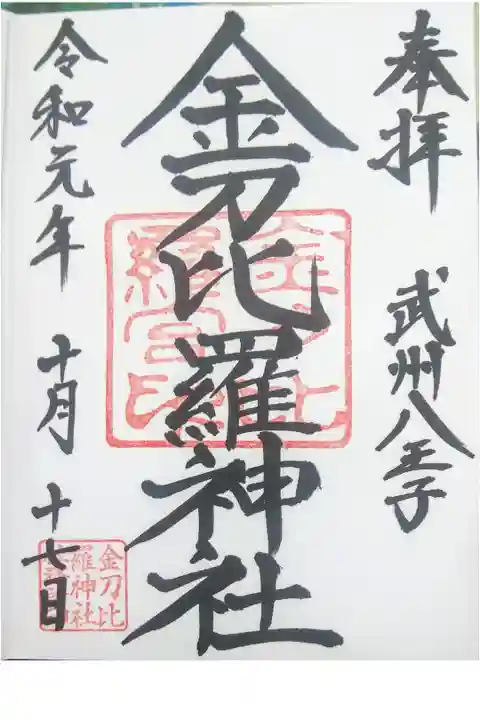 奉拝
武州八王子
金刀比羅神社
令和元年
十月
十七日
金刀比
羅神社